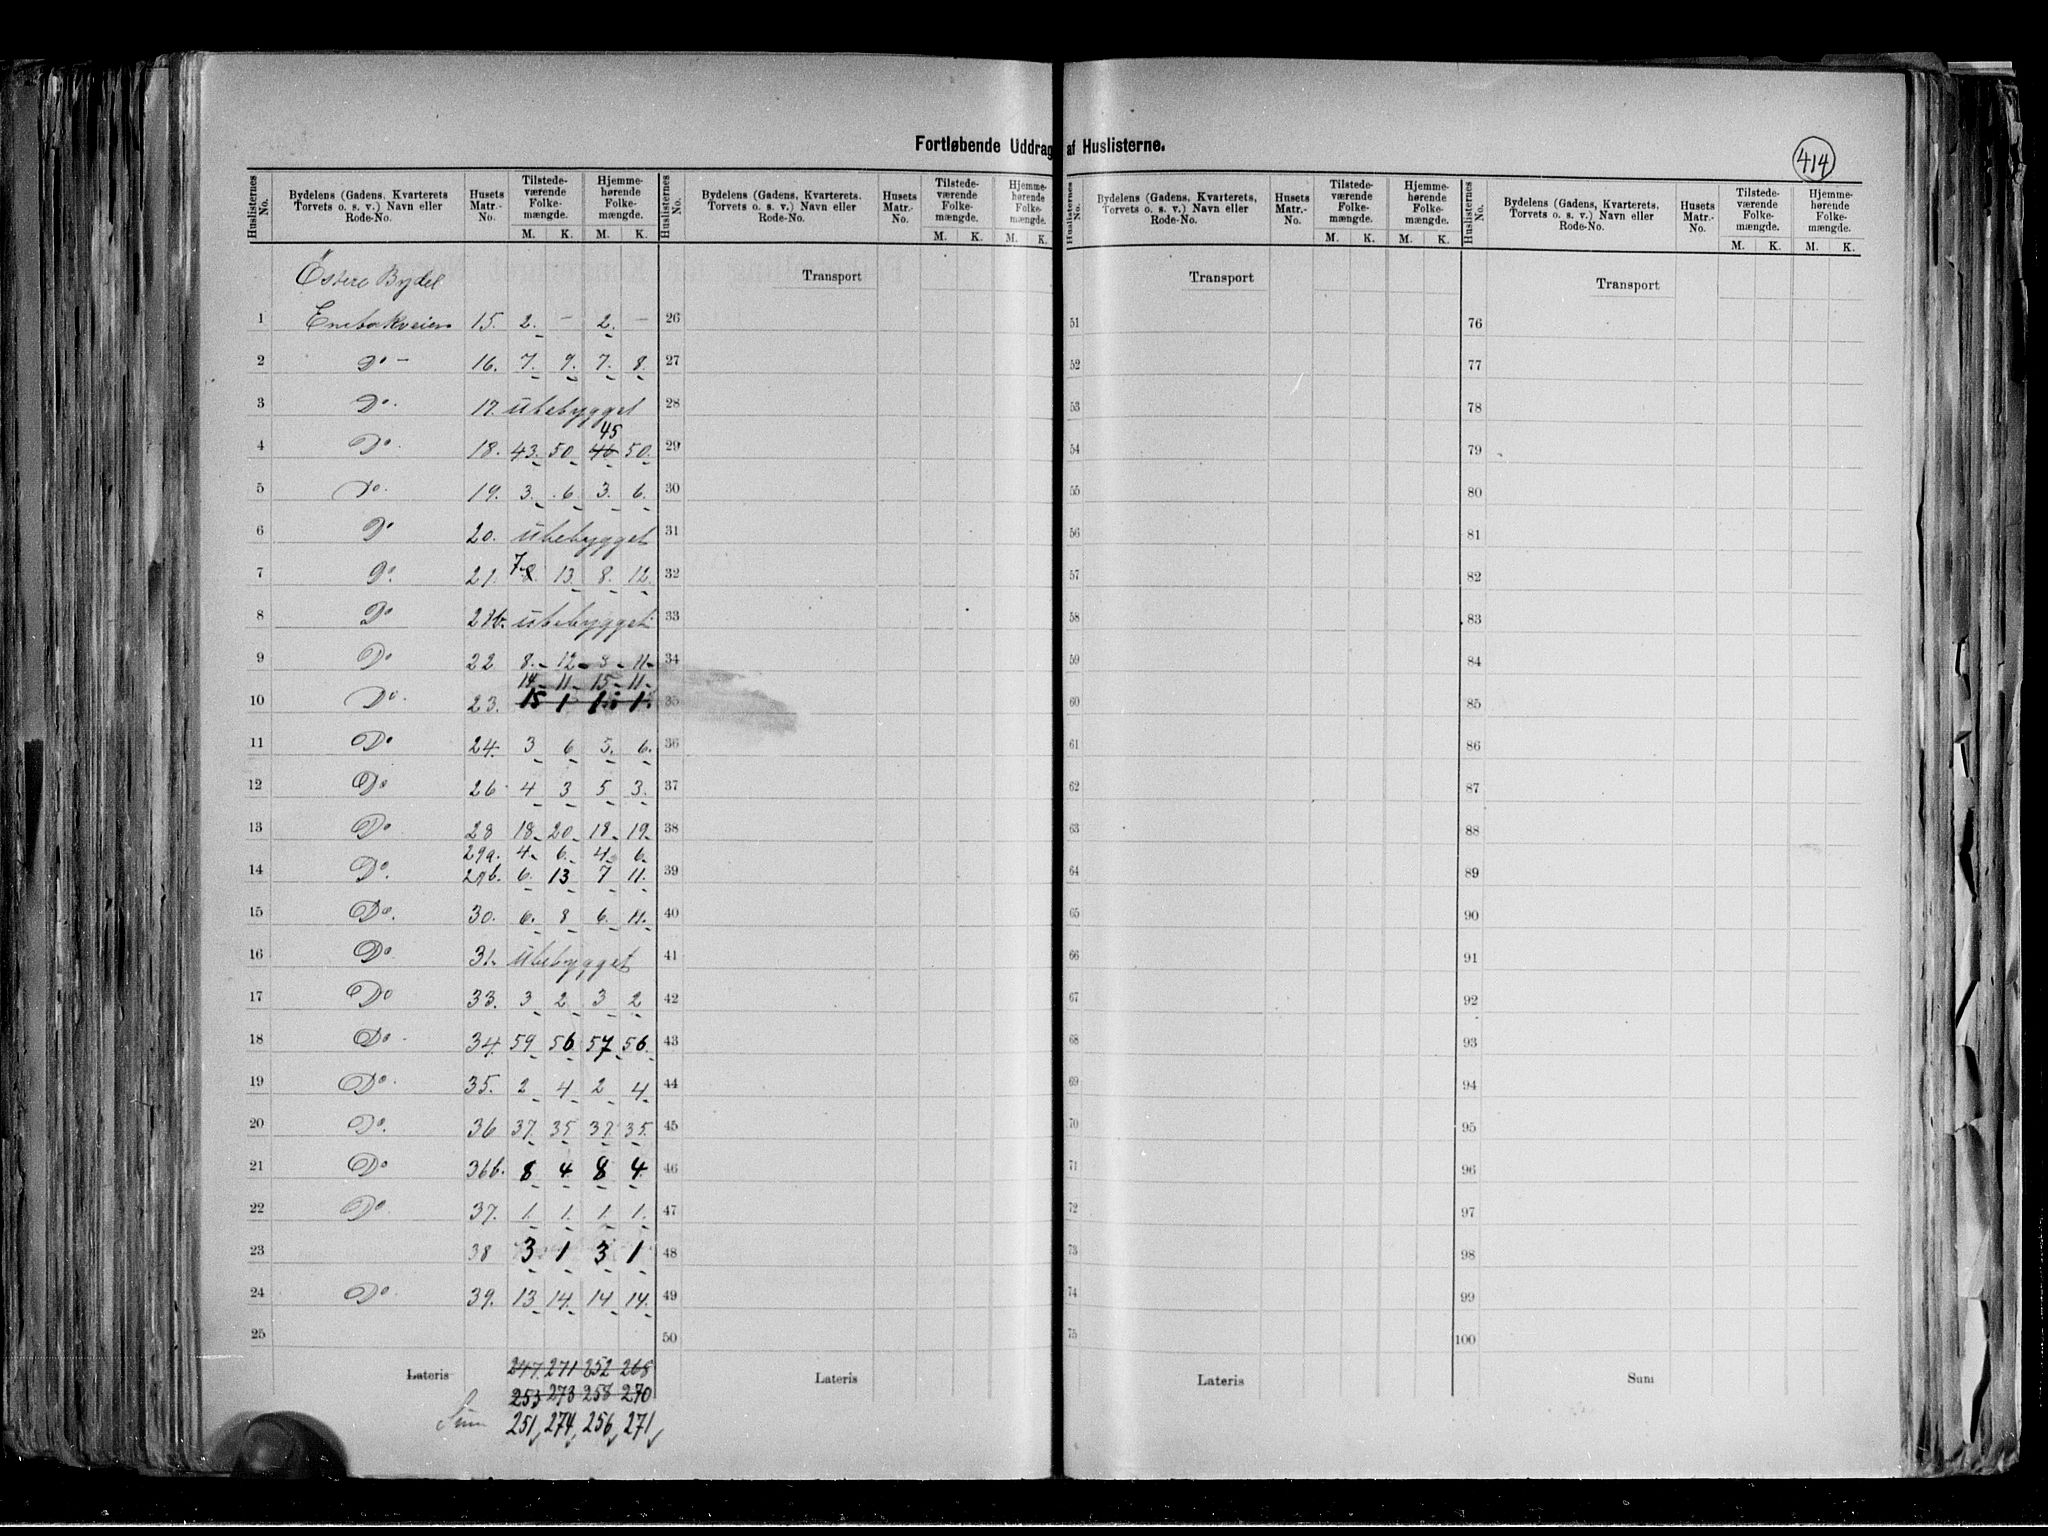 Fortløbende Uddrag af Huslisterne.
414
Huslisternes No. | Bydelens (Gadens, Kvarterets, Torvets o. s. v.) Navn eller Rode-No. | Husets Matr.-No. | Tilstedeværende Folkemængde. M. K. | Hjemmehørende Folkemængde. M. K.
Huslisternes No. | Bydelens (Gadens, Kvarterets, Torvets o. s. v.) Navn eller Rode-No. | Husets Matr.-No. | Tilstedeværende Folkemængde. M. K. | Hjemmehørende Folkemængde. M. K.
Huslisternes No. | Bydelens (Gadens, Kvarterets, Torvets o. s. v.) Navn eller Rode-No. | Husets Matr.-No. | Tilstedeværende Folkemængde. M. K. | Hjemmehørende Folkemængde. M. K.
Huslisternes No. | Bydelens (Gadens, Kvarterets, Torvets o. s. v.) Navn eller Rode-No. | Husets Matr.-No. | Tilstedeværende Folkemængde. M. K. | Hjemmehørende Folkemængde. M. K.
Östere Bydel Transport Transport Transport
1 Enebakveien 15. 2. - 2. - 26 51 76
2 Do - 16. 7. 9. 7. 8. 27 52 77
3 Do. 17. ubebygget 28 53 78
45
4 Do. 18. 43. 50. 46 50. 29 54 79
5 Do. 19. 3. 6. 3. 6. 30 55 80
6 Do 20. ubebygget 31 56 81
7
7 Do. 21. 8 13. 8. 12. 32 57 82
8 Do 21b. ubebygget 33 58 83
9 Do 22 8. 12 8 11 34 59 84
14 11 15 11
10 Do. 23. 15 1 1 35 60 85
11 Do 24. 3 6 3. 6. 36 61 86
12 Do 26 4 3 5 3. 37 62 87
13 Do 28 18 20 18 19 38 63 88
29a. 4 6. 4 6.
14 Do. 29b. 6. 13 7 11. 39 64 89
15 Do. 30. 6. 8 6. 11. 40 65 90
16 Do 31. ubebygget 41 66 91
17 Do 33. 3 2 3 2 42 67 92
18 Do 34. 59 56 57 56. 43 68 93
19 Do. 35. 2 4 2 4 44 69 94
20 Do. 36 37. 35. 37. 35. 45 70 95
21 Do 36b. 8 4 8 4 46 71 96
22 Do 37. 1. 1. 1. 1. 47 72 97
23 38 3 1 3 1 48 73 98
24 Do 39. 13 14. 14 14. 49 74 99
25 50 75 100
Lateris 247. 271 252 268 Lateris Lateris Sum
253 273 258 270
Sum 251 274 256 271